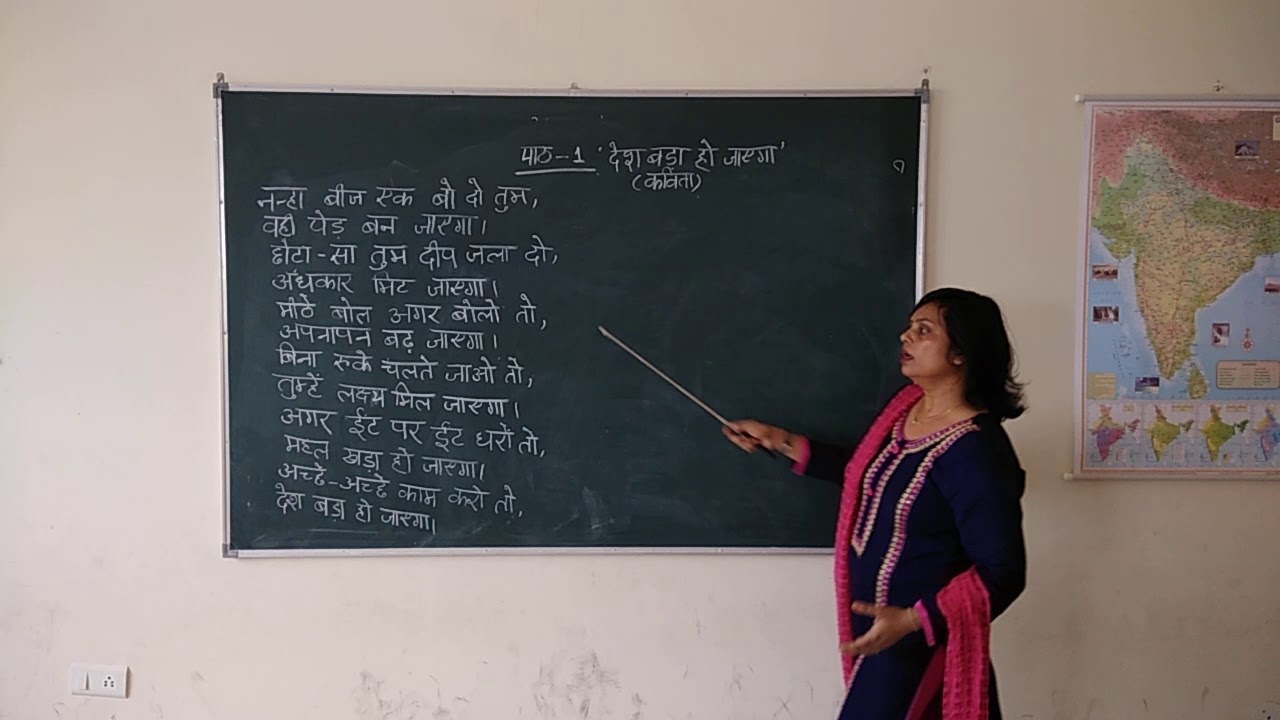 पाठ--1 'देश बड़ा हो जाएगा'
(कविता)
नन्हा बीज एक बो दो तुम,
वही पेड़ बन जाएगा।
छोटा-सा तुम दीप जला दो,
अंधकार मिट जाएगा।
मीठे बोल अगर बोलो तो,
अपनापन बढ़ जाएगा।
बिना रुके चलते जाओ तो,
तुम्हें लक्ष्य मिल जाएगा।
अगर ईंट पर ईंट धरों तो,
महल खड़ा हो जाएगा।
अच्छे-अच्छे काम करो तो,
देश बड़ा हो जाएगा।